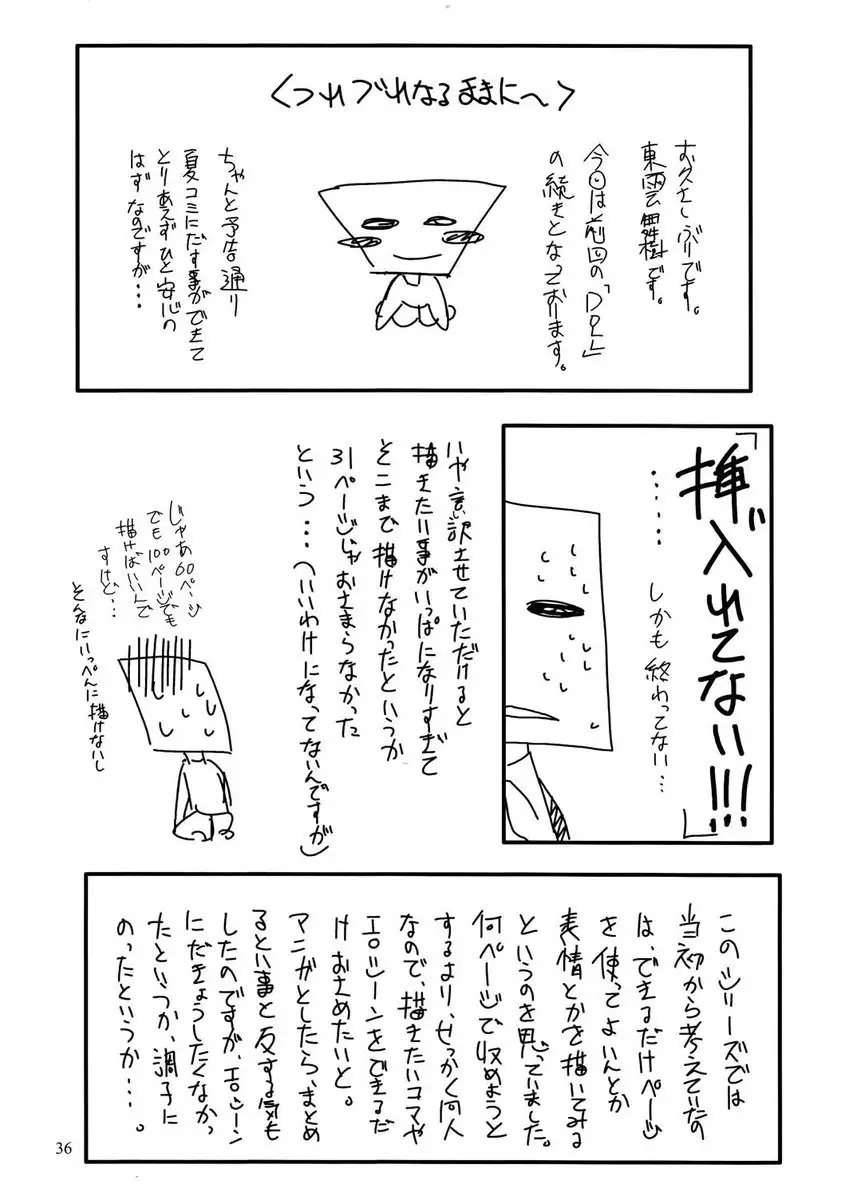 〈つれづれなるままに〜〉
お久しぶりです。
東雲舞樹です。
今回は前回の「DOL」
の続きとなっております。
ちゃんと予告通り
夏コミにだす事ができて
とりあえずひと安心の
はずなのですが・・・
「挿入れてない!!!」
・・・・・・しかも終わってない・・・
いや言い訳させていただけると
描きたい事がいっぱいになりすぎて
そこまで描けなかったというか
31ページじゃおさまらなかった
という・・・(いいわけになってないんですが)
じゃあ60ページ
でも100ページでも
描けばいいんで
すけど・・・
そんなにいっぺんに描けないし
このシリーズでは
当初から考えていたの
は、できるだけページ
を使ってよいんとか
表情とかを描いてみる
というのを思っていました。
何ページで収めようと
するより、せっかく同人
なので、描きたいコマや
エロシーンをできるだ
けおさめたいと。
マンガとしたら、まとめ
るとい事と反する気も
したのですが、エロシーン
にだきょうしたくなかっ
たといつか、調子に
のったというか・・・。
36